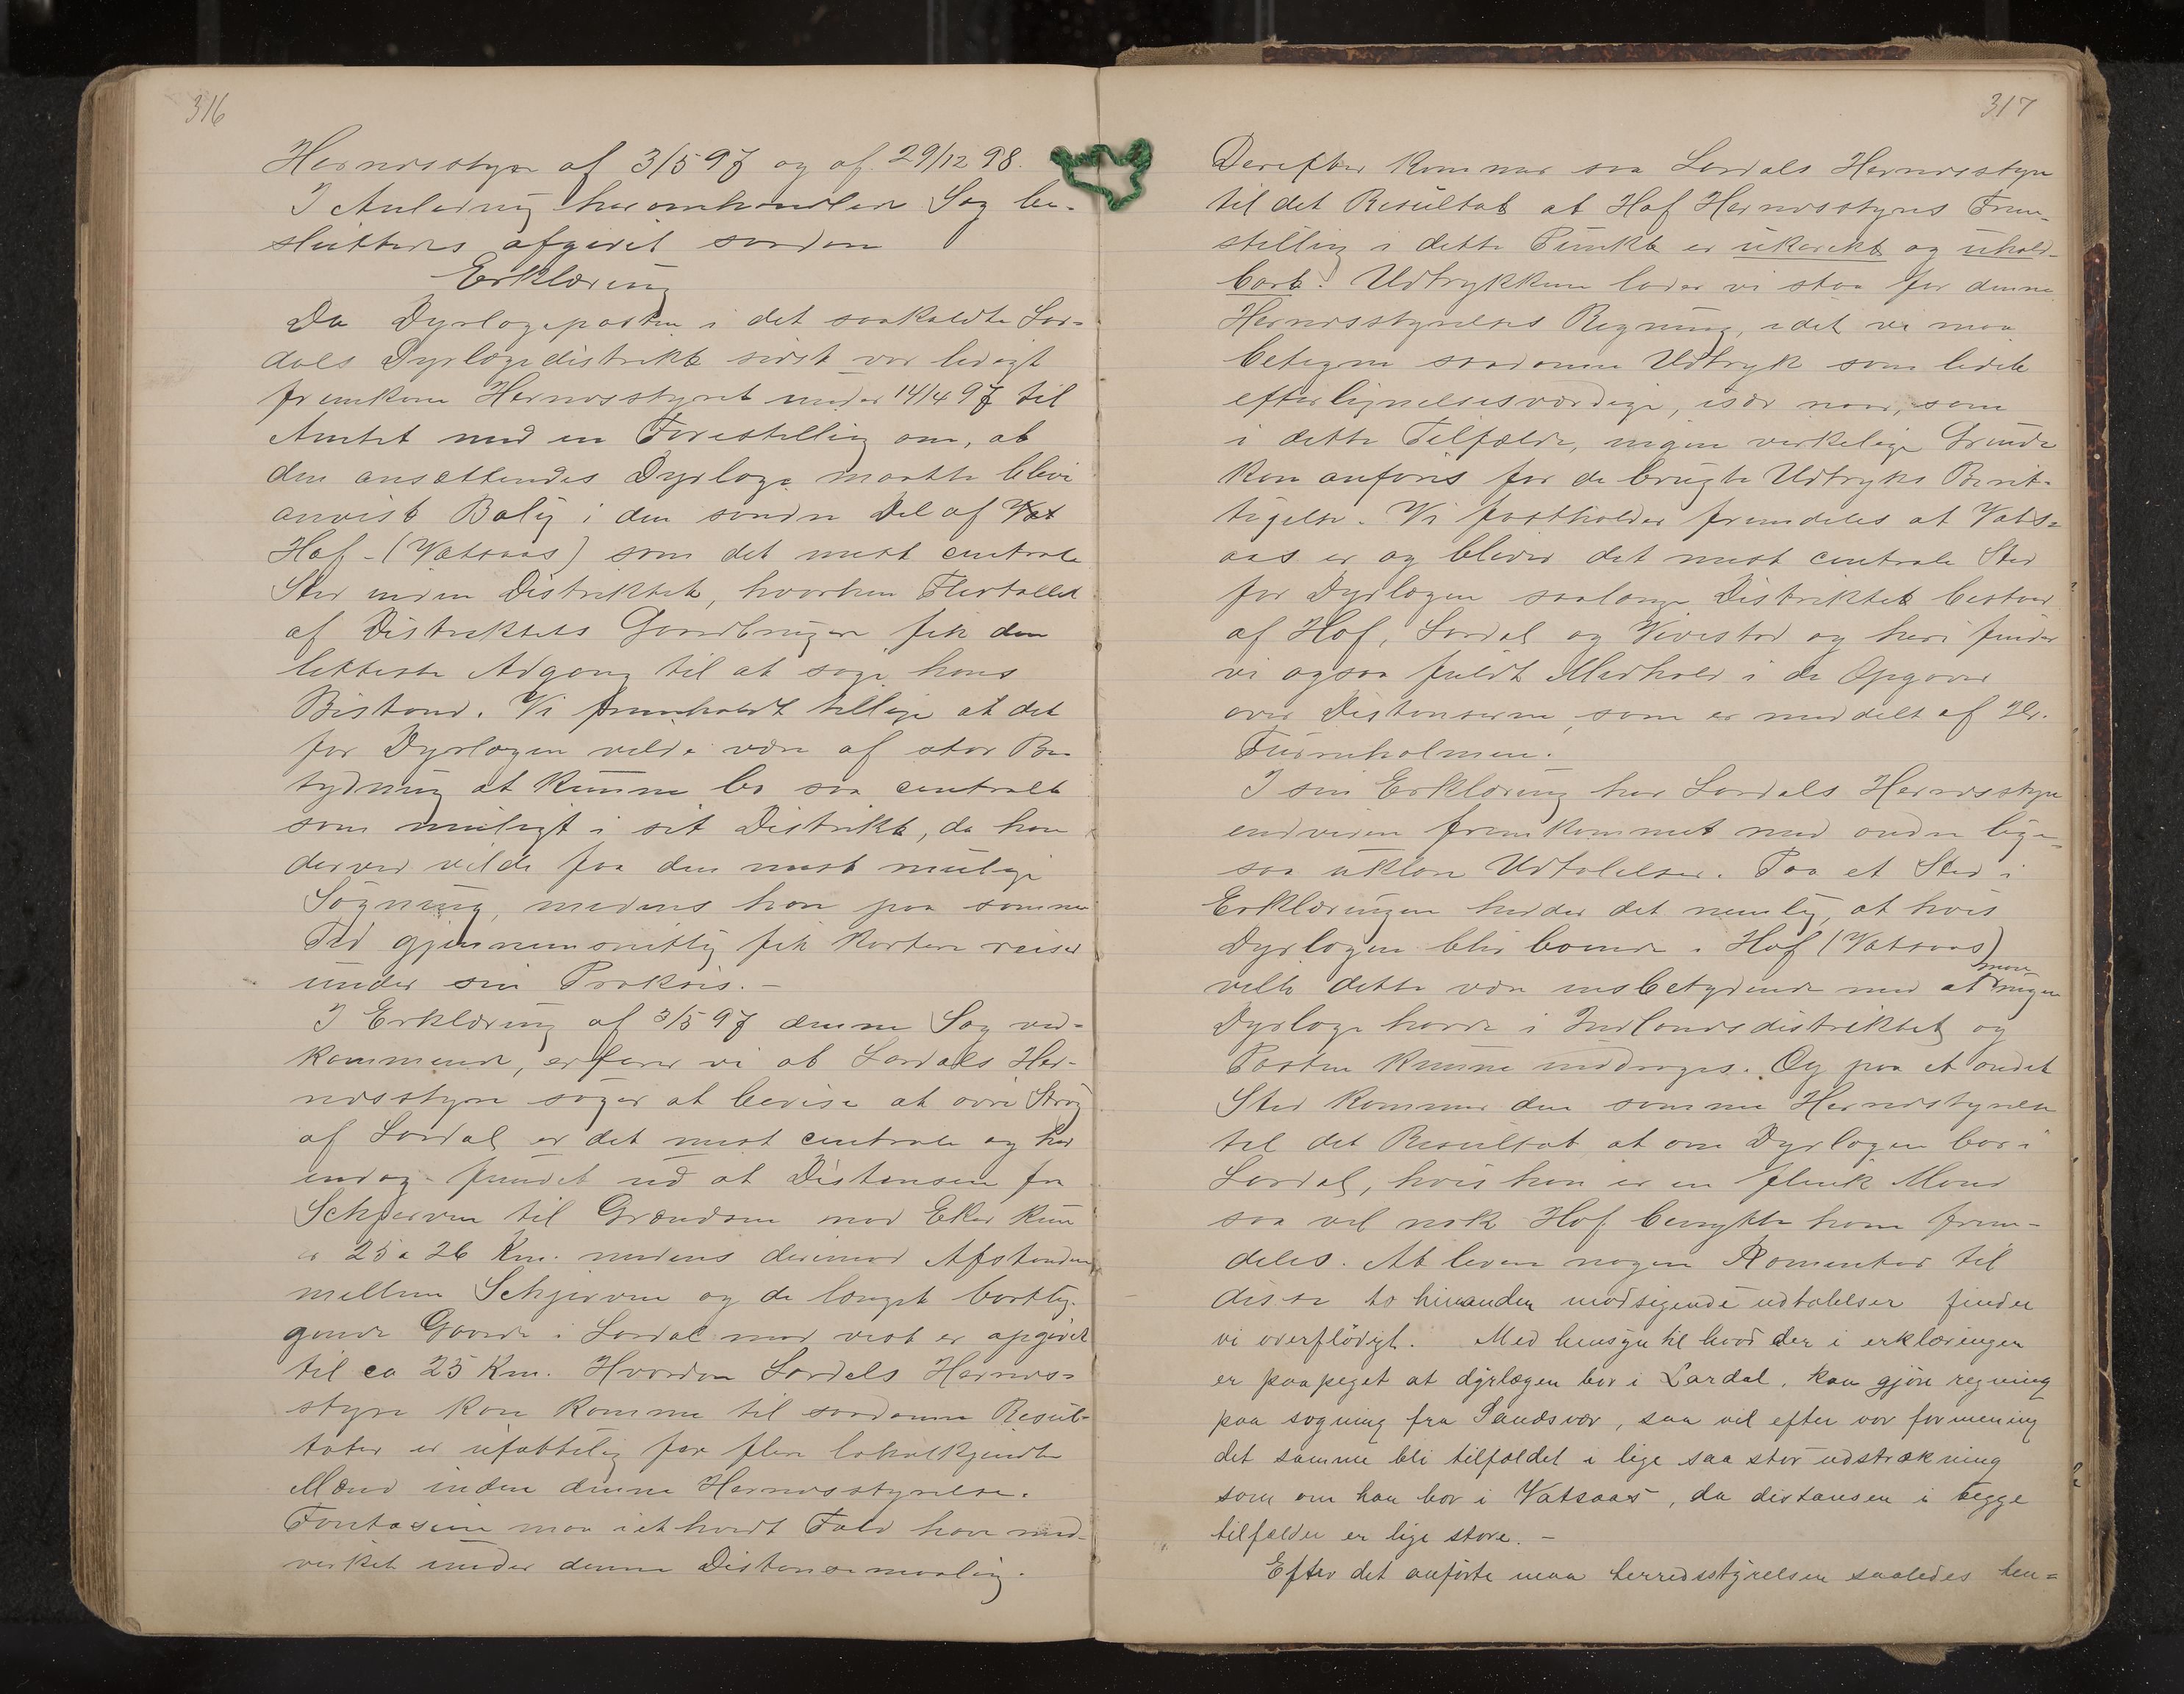 316
Herredsstyre af 3/5 97 og af 29/12 98.
I Anledning heromhandlede Sag be-
sluttedes afgivet saadan
Erklæring
Da Dyrlægeposten i det saakaldte Lar-
dals Dyrlægedistrikt sidst var ledigt
fremkom Herredsstyret under 14/4 97 til
Amtet med en Forestilling om, at
den ansættendes Dyrlæge maatte blive
anvist Bolig i den søndre Del af Vat
Hof - (Vatsaas) som det mest centrale
Sted inden Distriktet, hvorhen Flertallet
af Distriktets Gaardbrugere fik den
letteste Adgang til at søge hans
Bistand. Vi fremholdt tillige at det
for Dyrlægen vilde være af stor Be-
tydning at kunne bo saa centralt
som muligt i sit Distrikt, da han
derved vilde faa den mest mulige
Søgning, medens han paa samme
Tid gjennemsnittlig fik kortere reiser
under sin Praksis. -
I Erklæring af 3/5 97 denne Sag ved-
kommende, erfarer vi at Lardals Her-
redsstyre søger at bevise at øvre Strøg
af Lardal er det mest centrale og har
endog fundet ud at Distansen fra
Schjerven til Grændsen mod Eker kun
er 25 a 26 Km. medens derimod Afstanden
mellem Schjerven og de længst bortlig-
gende Gaarde i Lardal mod vest er opgivet
til ca 25 Km. Hvordan Lardals Herreds-
styre kan komme til saadanne Resul-
tater er ufattelig for flere lokalkjendte
Mænd inden denne Herredsstyrelse.
Fantasien maa i et hvert Fald have med-
virket under denne Distansemaaling.
317
Derefter kommer saa Lardals Herredsstyre
til det Resultat at Hof Herredsstyres Frem-
stilling i dette Punkt er ukorrekt og uhold-
bart. Udtrykkene lader vi staa for denne
Herredsstyrelses Regning, idet vi maa
betegne saadanne Udtryk som lidet
efterlignelsesværdige, især naar, som
i dette Tilfælde, ingen virkelige Grunde
kan anføres for de brugte Udtryks Beret-
tigelse. Vi fastholder fremdeles at Vats-
aas er og bliver det mest centrale Sted
for Dyrlægen saalænge Distriktet bestaar
af Hof, Lardal og Vivestad og heri finder
vi ogsaa fuldt Medhold i de Opgaver
over Distanserne, som er meddelt af Hr.
Fuurnholmen.
I sin Erklæring har Lardals Herredsstyre
endvidere fremkommet med andre lige-
saa uklare Udtalelser. Paa et Sted i
Erklæringen heder det nemlig, at hvis
Dyrlægen blir boende i Hof (Vatsaas)
ville dette være ensbetydende med at man ingen
Dyrlæge havde i Indlandsdistriktet og
Posten kunne inddrages. Og paa et andet
Sted kommer den samme Herredsstyrelse
til det Resultat at om Dyrlægen bor i
Lardal, hvis han er en flink Mand
saa vil nok Hof benytte ham frem-
deles. At levere nogen Komentar til
disse to hinanden modsigende udtalelser finder
vi overflødigt. Med hensyn til hvad der i erklæringen
er paapeget at dyrlægen bor i Lardal, kan gjøre regning
paa søgning fra Sandsvær, saa vil efter vor formening
det samme bli tilfældet i lige saa stor udstrækning
som om han bor i Vatsaas, da distansen i begge
tilfælder er lige store. -
Efter det anførte maa herredsstyrelsen saaledes hen=